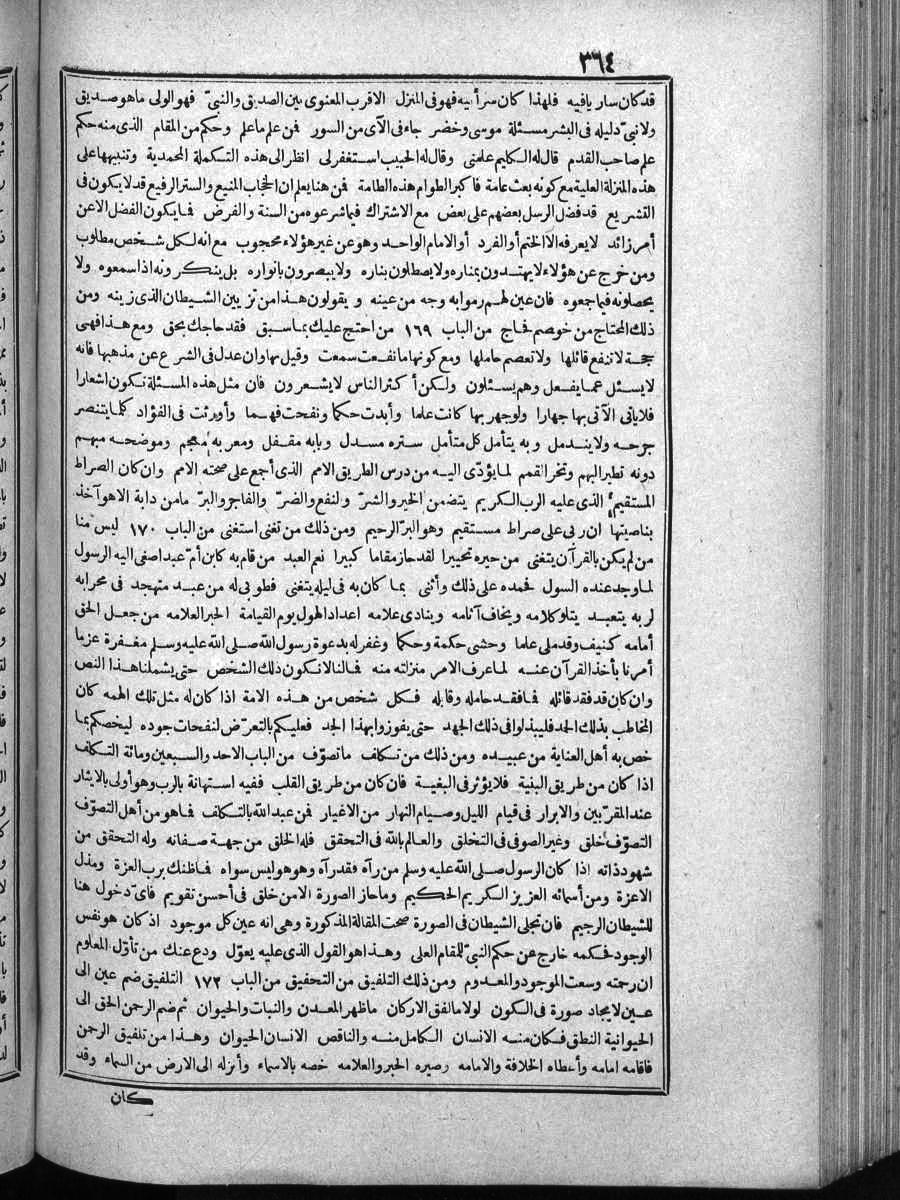 ٣٦٤
قد كان ساريافيه فلهذا كان سرأبيه فهو فى المنزل الاقرب المعنوى بين الصديق والنبىّ فهو الولى ماهو صديق
ولا نبىّ دليله فى البشر مسئلة موسى وخضر جاء فى الآى من السور فمن علم ماعلم وحكم من المقام الذى منه حكم
علم صاحب القدم قال له الكليم علمنى وقال له الحبيب استغفر لى انظر الى هذه التكملة المحمدية وتنبيهها على
هذه المنزلة العلية مع كونه بعث عامة فا كبر الطوام هذه الطامة فمن هنا يعلم ان الحجاب المنيع والستر الرفيع قد لا يكون فى
التشريع قد فضل الرسل بعضهم على بعض مع الاشتراك فيما شرعوه من السنة والفرض فما يكون الفضل الا عن
أمر زائد لا يعرفه الا الختم أو الفرد أو الامام الواحد وهو عن غير هؤلاء محجوب مع انه لكل شخص مطلوب
ومن خرج عن هؤلاء لا يهتدون بمناره ولا يصطلون بناره ولا يبصرون بانواره بل ينكرونه اذا سمعوه ولا
يحصلونه فيما جمعوه فان عين لهم رموا به وجه من عينه و يقولون هذا من تزيين الشيطان الذى زينه ومن
ذلك المحتاج من خوصم فحاج من الباب ١٦٩ من احتج عليك بما سبق فقد حاجك بحق ومع هذا فهى
حجة لا تنفع قائلها ولا تعصم حاملها ومع كونها ما نفعت سمعت وقيل بها وان عدل فى الشرع عن مذهبها فانه
لا يسئل عما يفعل وهم يسئلون ولكن أكثر الناس لا يشعرون فان مثل هذه المسئلة تكون اشعارا
فلا يأتى الآتى بها جهارا ولو جهر بها كانت علما وأبدت حكما ونفحت فهما وأورثت فى الفؤاد كلما يتنصر
جرحه ولا يندمل و به يتأمل كل متأمل ستره مسدل وبابه مقفل ومعربه معجم وموضحه مبهم
دونه تطير البهم وتخر القمم لما يؤدّى اليه من درس الطريق الامم الذى أجمع على صحته الامم وان كان الصراط
المستقيم الذى عليه الرب الكريم يتضمن الخير والشرّ والنفع والضرّ والفاجر والبرّ مامن دابة الا هو آخذ
بناصيتها ان ربى على صراط مستقيم وهو البرّ الرحيم ومن ذلك من تغنى استغنى من الباب ١٧٠ ليس منا
من لم يكن بالقرآن يتغنى من حيره تحييرا لقد حاز مقاما كبيرا نعم العبد من قام به كابن أمّ عبد اصغى اليه الرسول
لما وجد عنده السول فحمده على ذلك وأثنى بما كان به فى ليله يتغنى فطوبى له من عبد متهجد فى محرابه
لربه يتعبد يتلو كلامه ويخاف آثامه وينادى علامه اعدادا لهول يوم القيامة الحبر العلامه من جعل الحق
أمامه كنيف وقد ملئ علما وحشى حكمة وحكما وغفر له بدعوة رسول الله صلى الله عليه وسلم مغفرة عزما
أمرنا بأخذ القرآن عنه لما عرف الامر منزلته منه فمالنا لا نكون ذلك الشخص حتى يشملنا هذا النص
وان كان قد فقد قائله فما فقد حامله وقابله فكل شخص من هذه الامة اذا كان له مثل تلك الهمه كان
المخاطب بذلك الحد فليبذلوا فى ذلك الجهد حتى يفوزوا بهذا الجد فعليكم بالتعرّض لنفحات جوده ليخصكم بما
خص به أهل العناية من عبيده ومن ذلك من تكلف ما تصوّف من الباب الاحد والسبعين ومائة التكلف
اذا كان من طريق البنية فلا يؤثر فى البغية فان كان من طريق القلب ففيه استهانة بالرب وهو أولى بالايثار
عند المقرّبين والابرار فى قيام الليل وصيام النهار من الاغيار فمن عبد الله بالتكلف فماهو من أهل التصوّف
التصوّف خلق وغير الصوفى فى التخلق والعالم بالله فى التحقق فله الخلق من جهة صفاته وله التحقق من
شهود ذاته اذا كان الرسول صلى الله عليه وسلم من رآه فقد رآه وهو هو ليس سواه فما ظنك برب العزة ومذل
الاعزة ومن أسمائه العزيز الكريم الحكيم وما حاز الصورة الا من خلق فى أحسن تقويم فاىّ دخول هنا
للشيطان الرجيم فان تجلى الشيطان فى الصورة صحت المقالة المذكورة وهى انه عين كل موجود اذ كان هو نفس
الوجود فحكمه خارج عن حكم النبىّ للمقام العلى وهذا هو القول الذى عليه يعوّل ودع عنك من تأوّل المعلوم
ان رحمته وسعت الموجود والمعدوم ومن ذلك التلفيق من التحقيق من الباب ١٧٢ التلفيق ضم عين الى
عين لايجاد صورة فى الكون لولا ما التفق الاركان ما ظهر المعدن والنبات والحيوان ثم ضم الرحمن الحق الى
الحيوانية النطق فكان منه الانسان الكامل منه والناقص الانسان الحيوان وهذا من تلفيق الرحمن
فاقامه امامه وأعطاه الخلافة والامامه وصيره الحبر والعلامه خصه بالاسماء وأنزله الى الارض من السماء وقد
كان